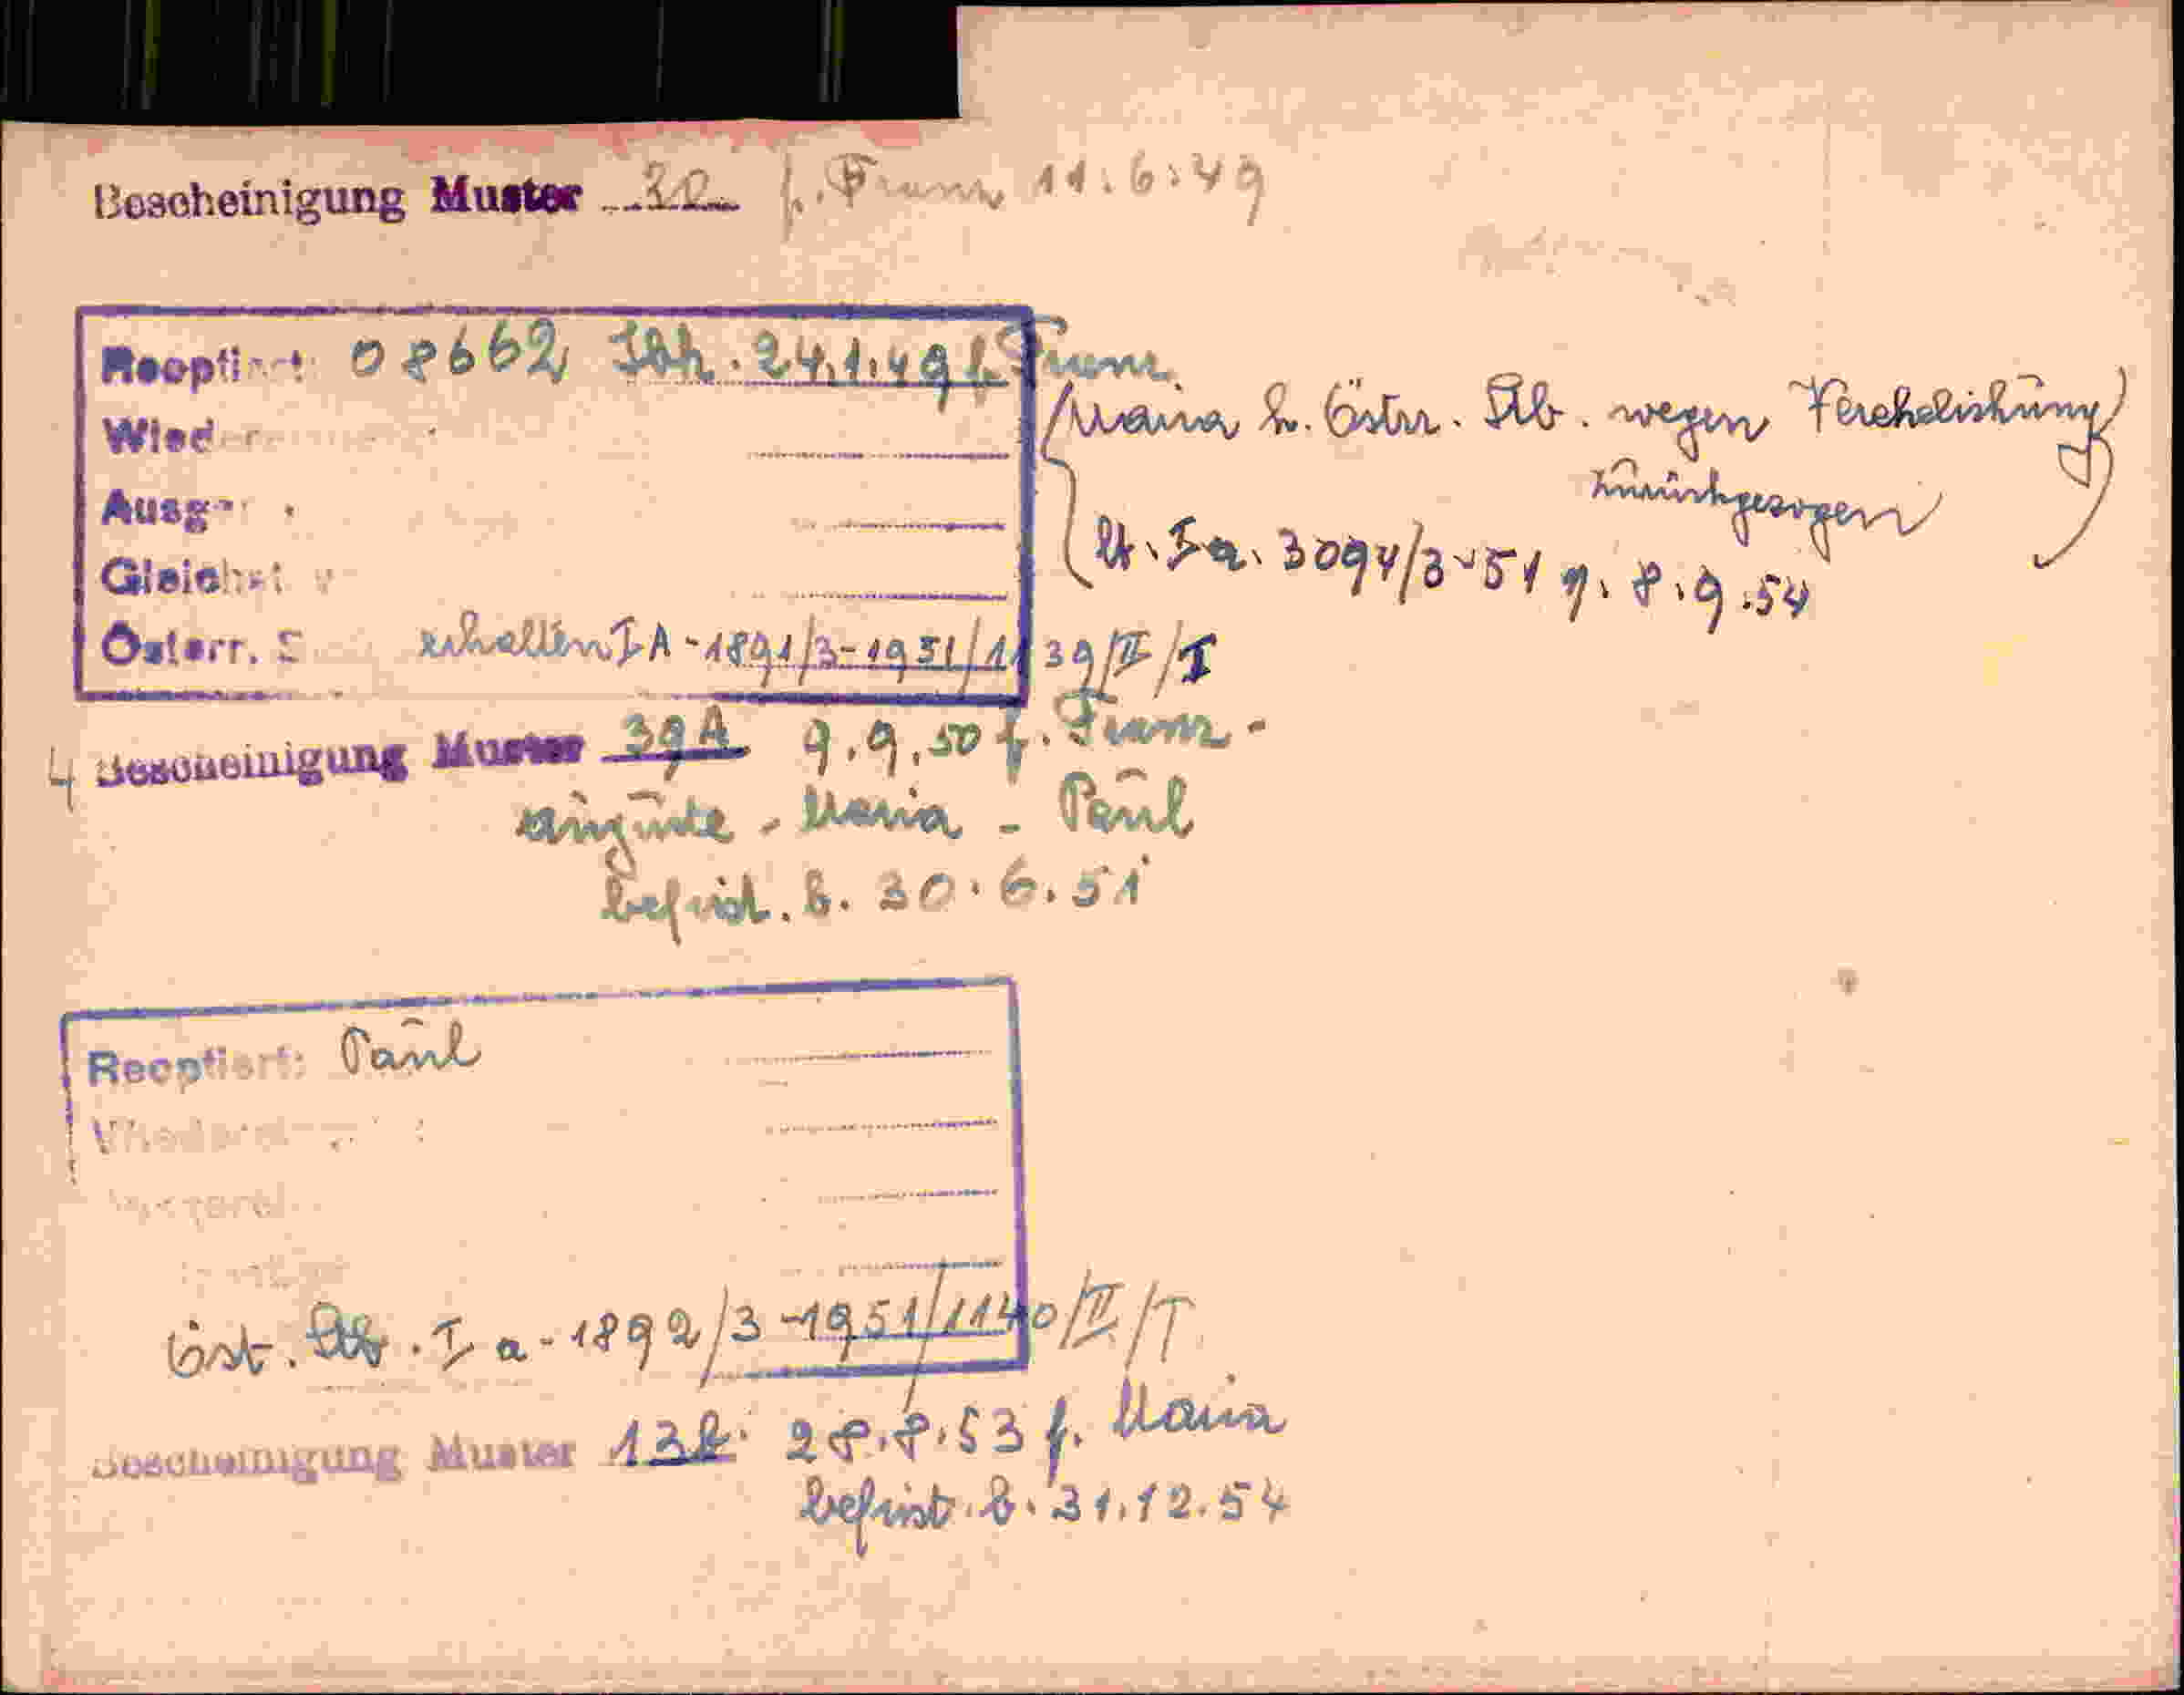 Bescheinigung Muster 32 f. Franz 11.6.49
Reoptiert: 08662 Ibk. 24.1.49 f. Franz
Wied
(Maria h. Östr. Stb. wegen Verehelichung)
zurückgezogen
Ausg
Gleich
Zl. Ia. 3094/3-51 v. 8.9.54
Österr. S erhalten IA-1891/3-1951/1139/II/T
4 Bescheinigung Muster 39A 9.9.50 f. Franz -
Maria - Paul
befrist. b. 30.6.51
Reoptiert: Paul
Öst. Stb. Ia-1892/3-1951/1140/II/T
Bescheinigung Muster 132 28.8.53 f. Maria
befrist. b. 31.12.54